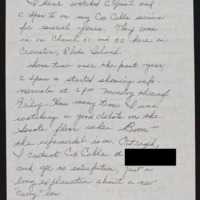 I have watched C Span 1 and
C Span II on my Cox Cable service
for several years. They come
in on Channel 61 and 62 here in
Cranston, Rhode Island.
Sometime over the past year,
C Span II started showing info-
mercials at 6 pm Monday through
Friday. How many times I was
watching a good debate on the
Senate floor when Boom —
the infomercial is on. Outraged,
I contact Cox Cable
and got no satisfaction, just a
long explanation about a new
law.